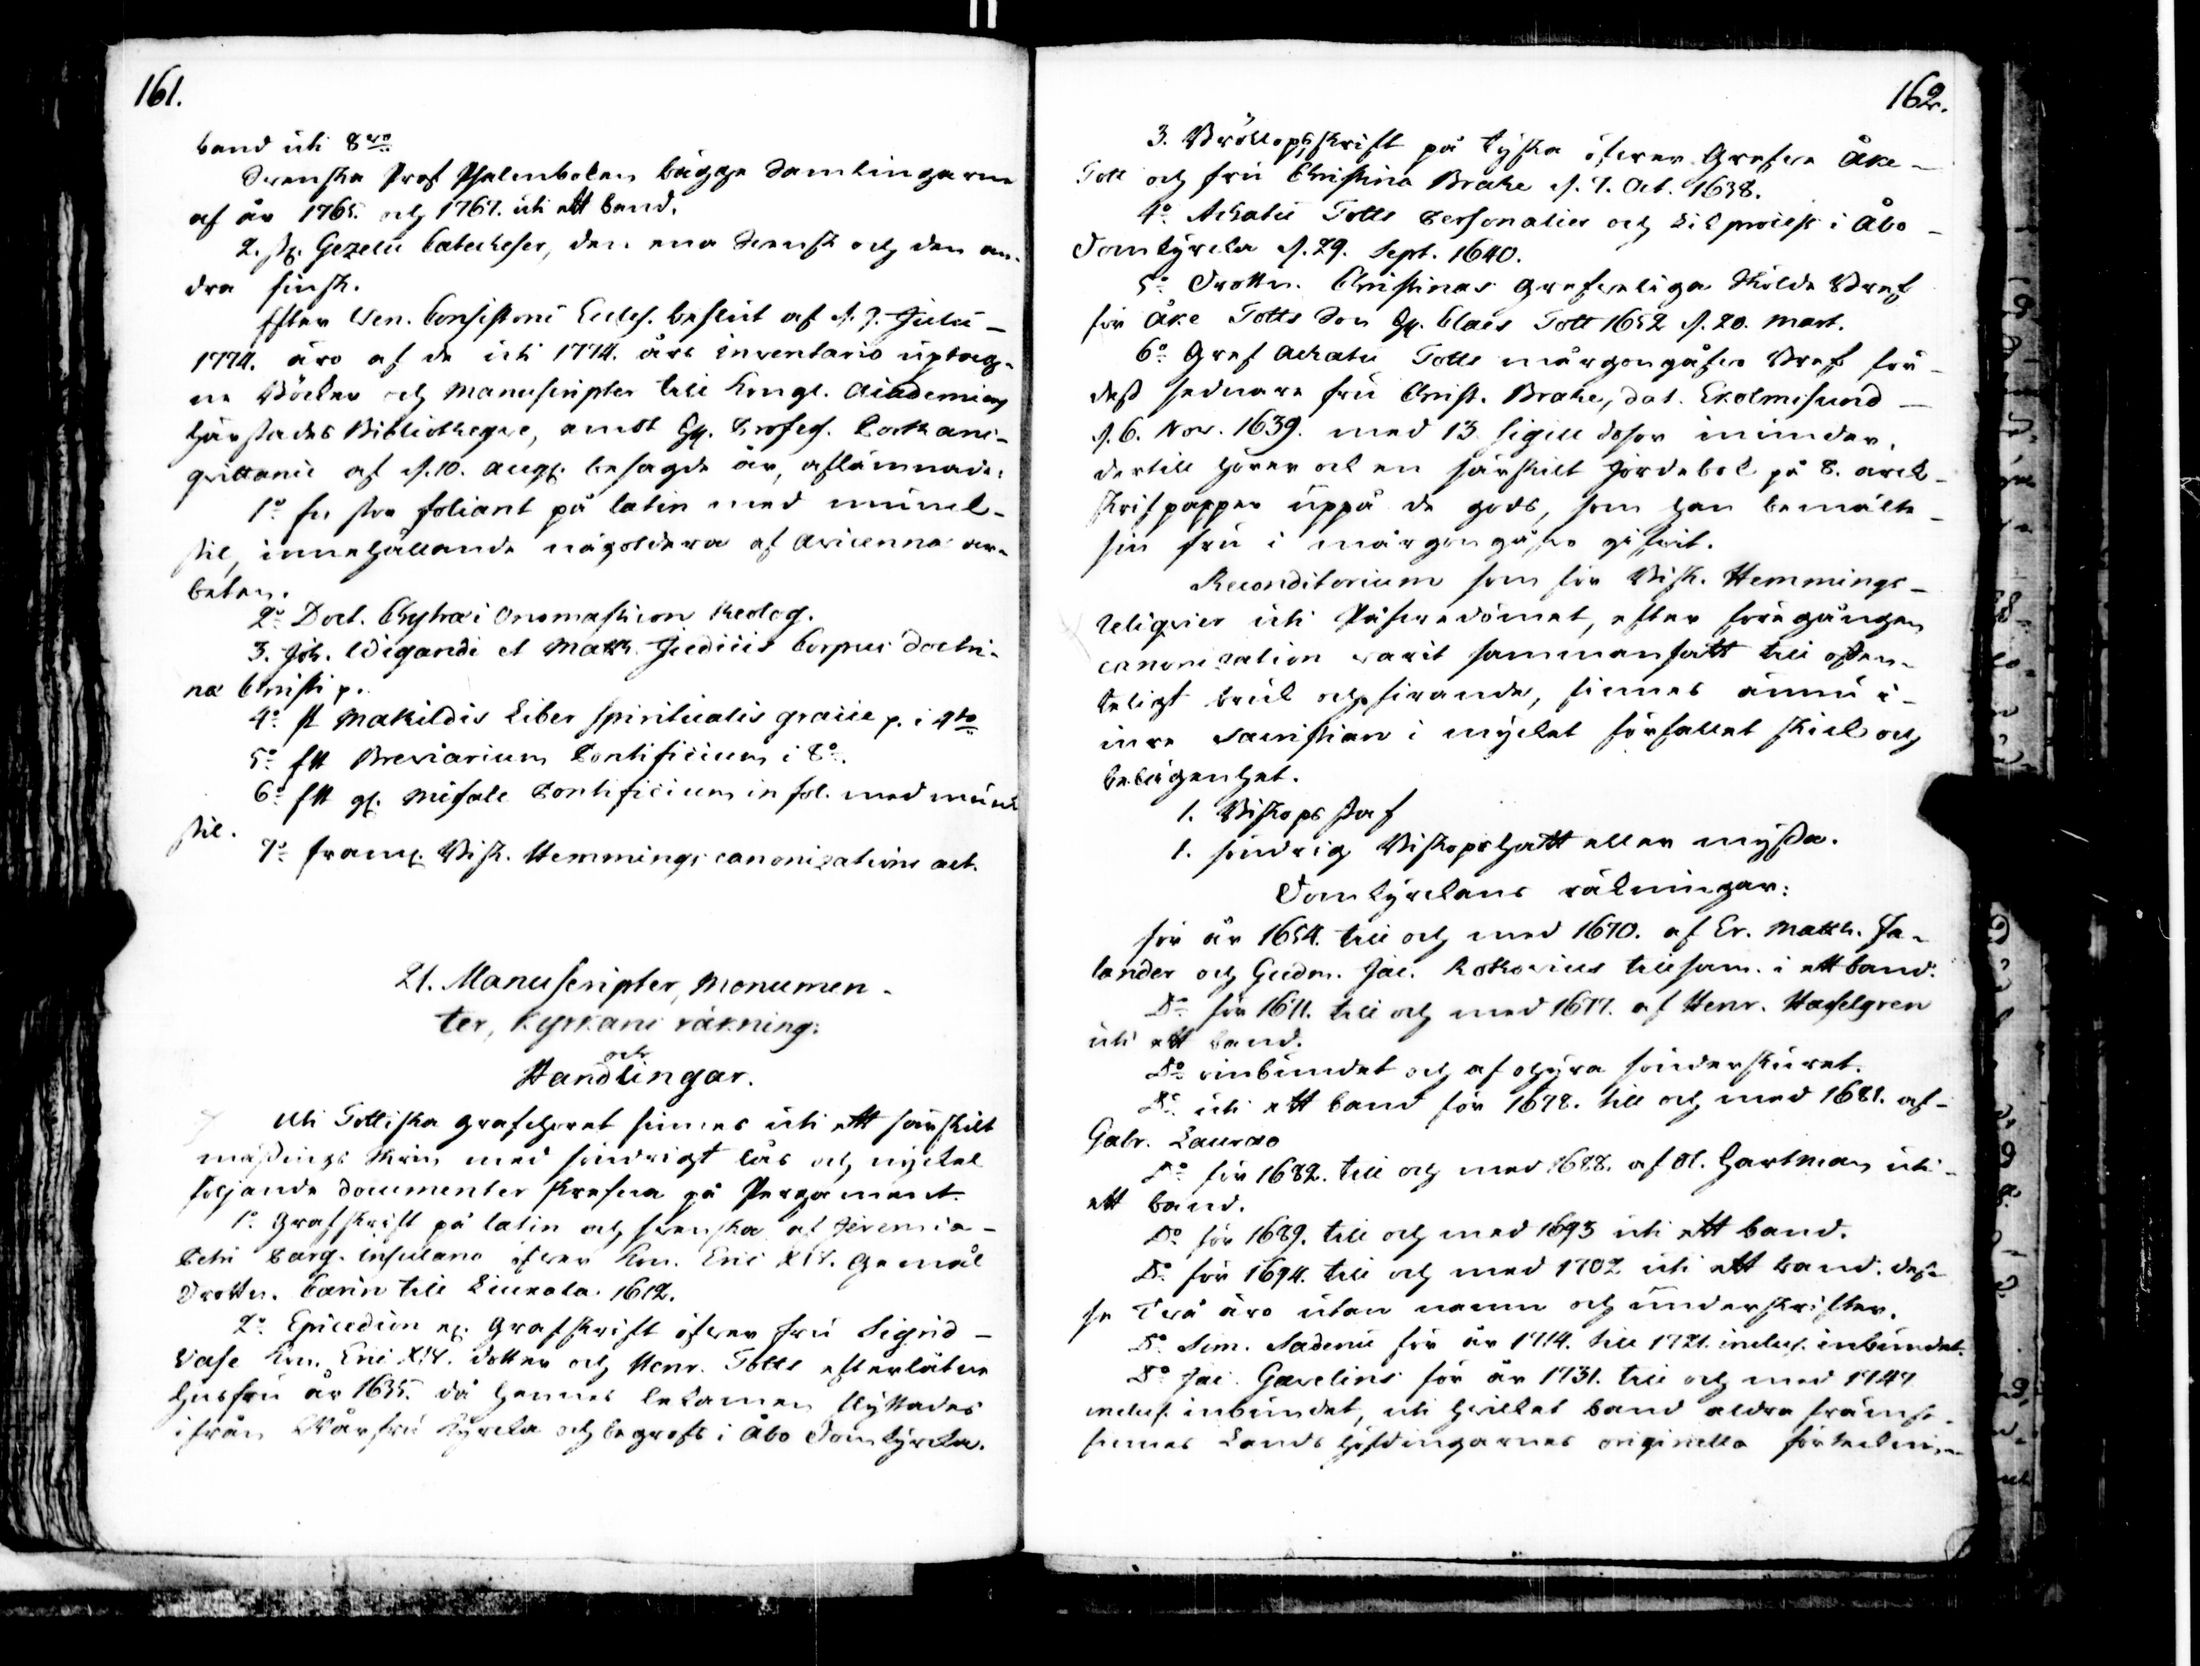 161.
band uti 8:vo
Svenska Prof Psalmboken bägge Samlingarne
af år 1765. och 1767. uti ett band.
2. st. Gezelii Catecheser, den ena Svensk och den an-
dra finsk.
Efter Ven. Consistorii Eccles. beslut af d. 7. Julii
1774. äro af de uti 1774. års inventario uptag-
ne Böcker och Manuscripter till Kongl. Academiens
härstädes Bibliotheque, emot Hr. Profess. Porthans
qvittance af d. 10. Aug. besagde år, aflämnade:
1:o En stor foliant på latin med munk-
stil, innehållande någoldera af Avicennæ ar-
beten.
2:o Doct. Chytræi Onomasticon theolog.
3. Joh. Wigandi et Matth. Judicis Corpus doctri-
næ Christi p.
4:o St Mathildis Liber spiritualis gratiæ p. i 4:to
5:o Ett Breviarium Pontificium i 8:o.
6:o Ett gl. Missale Pontificium in fol. med munk
stil.
7:o Transs. Bisk. Hemmings canonizations act.
21. Manuscripter, Monumen-
ter, Kyrkans räkning:
och
Handlingar.
Uti Tottiska Grafchoret finnes uti ett särskilt
mässings skrin med söndrigt lås och nyckel
följande documenter skrefna på Pergament.
1:o Grafskrift på latin och svenska af Jeremia
Petri Barg. insulano öfver Kon. Eric XIV. Gemål
Drottn. Carin till Liuxala 1612.
2:o Epicedion el. Grafskrift öfver fru Sigrid
Vase Kon. Eric XIV. dotter och Henr. Totts efterlåtne
husfru år 1635. då hennes lekamen flyttades
ifrån Vårfru kyrcka och begrofs i Åbo Domkyrcka.
162.
3. Bröllops skrift på tyska öfver Grefve Åke
Tott och fru Christina Brahe d. 7. Oct. 1638.
4:o Achatii Totts Personalier och Likprocess i Åbo
Domkyrcka d. 29. Sept. 1640.
5:o Drottn. Christinas Grefveliga Skölde Bref
för Åke Totts Son Gr. Claës Tott 1652 d. 20. Mart.
6:o Gref Achatii Totts mårgongåfvo Bref för
dess sednare fru Christ. Brahe, dat. Ekolmsund
d. 6. Nov. 1639. med 13 sigill dosor inunder,
dertill hörer ock en särskilt Jordebok på 8. arck
skrifpapper uppå de gods, som han bemälte
sin fru i mårgongåfvo gifvit.
Reconditorium som för Bisk. Hemmings
Reliqvier uti Påfvedömet, efter föregången
canonization varit sammansatt till offen-
teligt bruk och firande, finnes ännu i
inre Sacristian i mycket förfallet skick och
belägenhet.
1. Biskops staf
1. söndrig Biskopshatt eller mÿssa.
Domkyrckans räkningar:
för år 1654. till och med 1670. af Er. Matth. Fa-
lander och Gudm. Jac. Rothovius tillsam. i ett band.
D:o för 1671. till och med 1677. af Henr. Hasselgren
uti ett band.
D:o oinbundet och af ohyra sönderskuret.
D:o uti ett band för 1678. till och med 1681. af
Gabr. Lauræo
D:o för 1682. till och med 1688. af Ol. Hartman uti
ett band.
D:o för 1689. till och med 1693 uti ett band.
D:o för 1694. till och med 1702 uti ett band. des-
se Två äro utan namn och underskrifter.
D:o Sim. Sadenii för år 1714. till 1721. inclus. inbundet.
D:o Jac. Gavelins för år 1731. till och med 1747
inclus. inbundet, uti hvilket band aldra främst
finnes Landshöfdingarnes originella förteckning